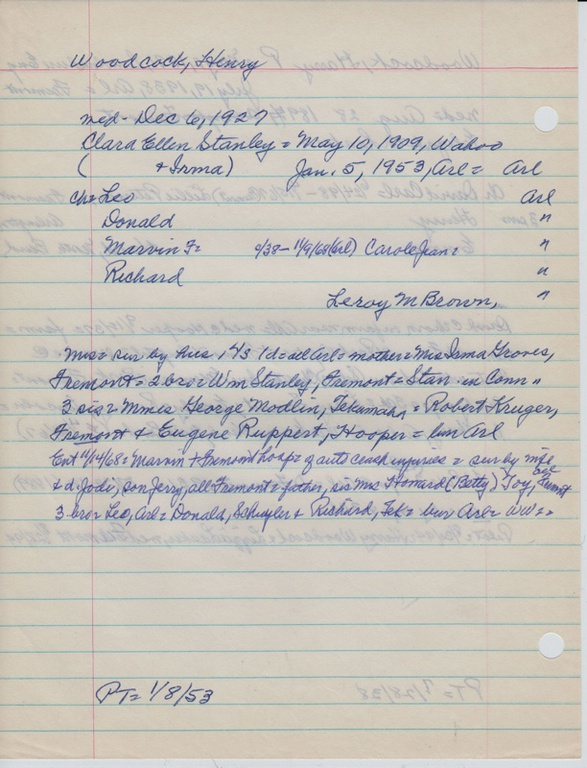 Woodcock, Henry
med- Dec 6, 1927
Clara Ellen Stanley = May 10, 1909, Wahoo
( + Irma) Jan. 5, 1953, Arl = Arl
Ch = Leo Arl
Donald "
Marvin F = 9/38 - 1/9/68 (Arl) Carole Jean = "
Richard "
Leroy M Brown, "
Mrs = sur by hus, 4 s 1 d = all Arl = mother = Mrs Irma Groves,
Fremont = 2 bro = Wm Stanley, Fremont = Stan in Conn "
3 sis = Mmes George Modlin, Tekamah, = Robert Kruger,
Fremont & Eugene Ruppert, Hooper = bur Arl
Ent 1/14/68 = Marvin + Fremont hosp = of auto crash injuries = sur by wife
& d. Jodi, son Jerry, all Fremont = father, sis Mrs Howard (Betty) Toy, Fremont
3 bro = Leo, Arl = Donald, Schuyler & Richard, Tek = bur Arl = WW =
PT = 1/8/53